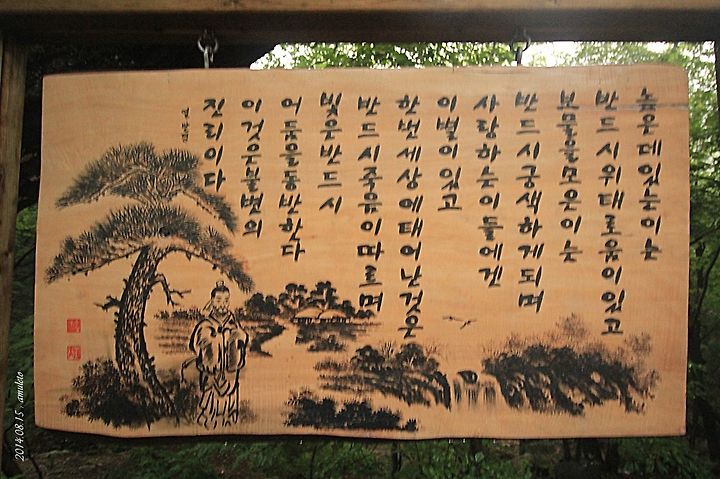 높은데있는이는
반드시위태로움이있고
보물을모은이는
반드시궁색하게되며
사랑하는이들에겐
이별이있고
한번세상에태어난것은
반드시죽음이따르며
빛은반드시
어둠을동반한다
이것은불변의
진리이다
2014.08.15 . amuleto